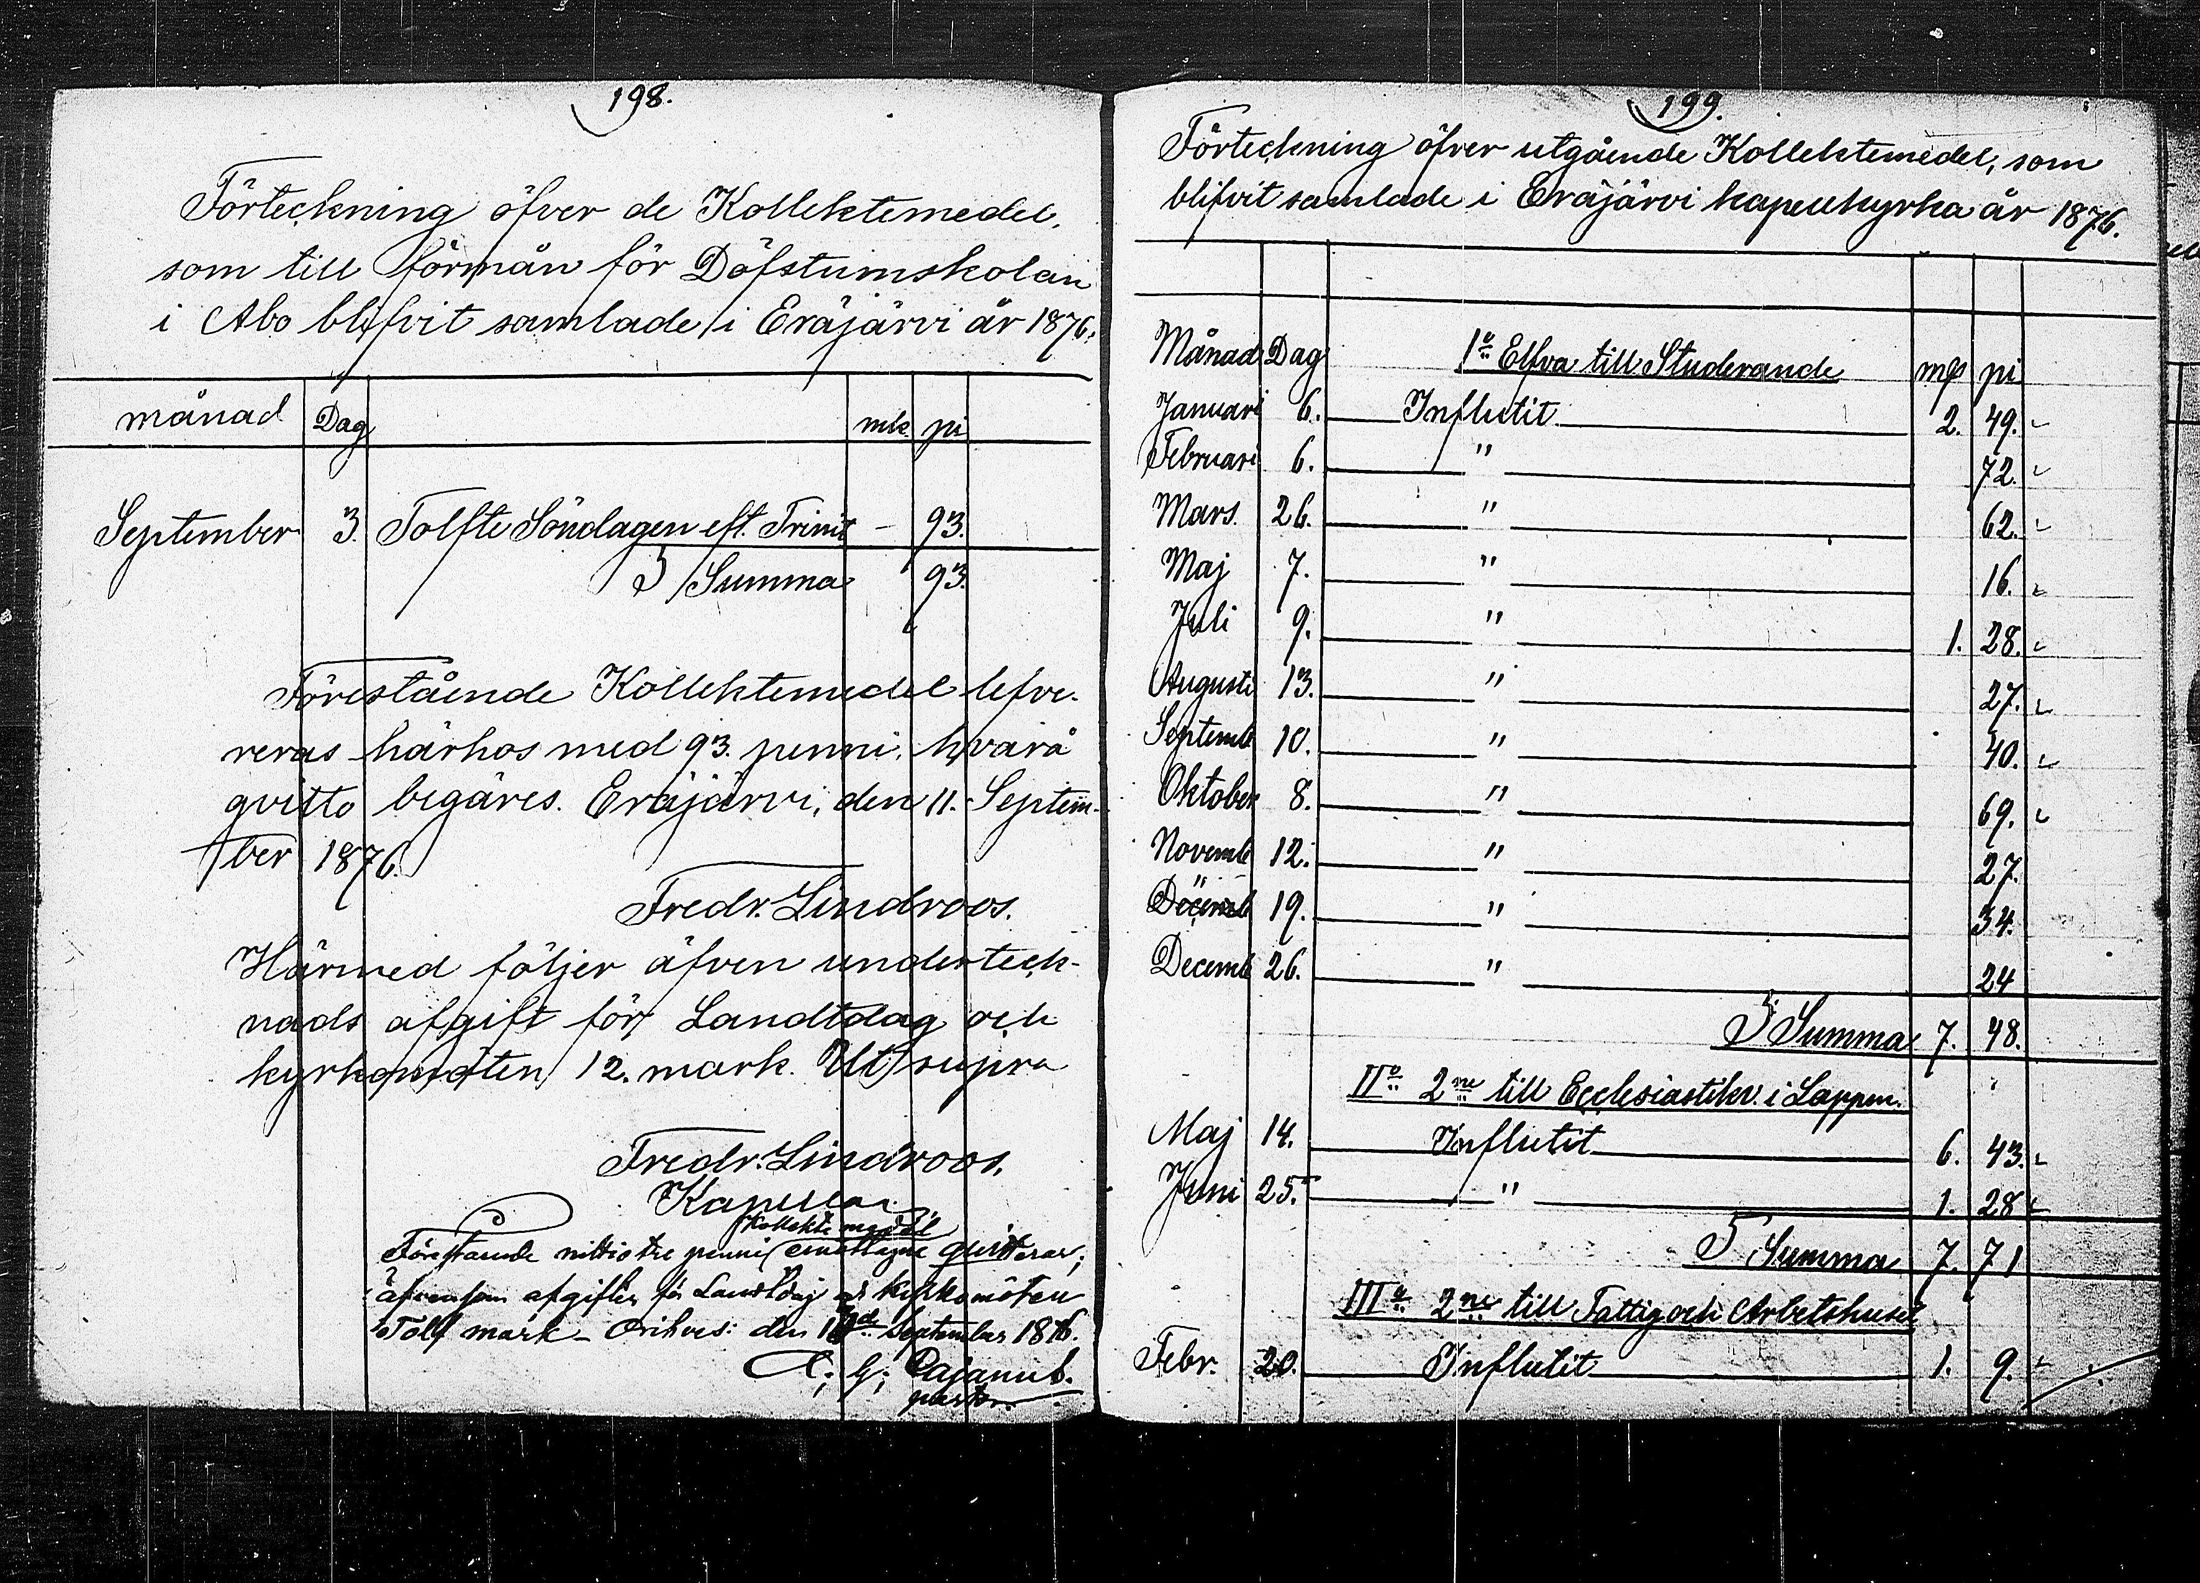 198.
Förteckning öfver de Kollektemedel,
som till förmån för Döfstumskolan
i Åbo blifvit samlade i Eräjärvi år 1876.
månad Dag mk pi
September 3. Tolfte Söndagen eft. Trinit — 93.
Summa 93.
Förestående Kollektemedel lefve-
reras härhos med 93. penni, hvarå
qvitto begäres. Eräjärvi, den 11. Septem-
ber 1876.
Fredr. Lindroos.
Härmed följer äfven underteck-
nads afgift för Landtdag och
kyrkomöten 12. mark. Ut supra
Fredr. Lindroos.
Kapellan.
Kollekte medel
Förestående nittiotre penni emottagne quitteras;
äfvensom afgiften för Landtdag o kyrkomöten
Tolf mark — Orihvesi den September 1876.
Pajanus.
pastor.
199.
Förteckning öfver utgående Kollektemedel, som
blifvit samlade i Eräjärvi kapellkyrka år 1876.
Månad Dag 1o Elfva till Studerande mk pi
Januari 6. Influtit 2. 49.
Februari 6. " 72.
Mars. 26. " 62.
Maj 7. " 16.
Juli 9. " 1. 28.
Augusti 13. " 27.
Septemb 10. " 40.
Oktober 8. " 69.
Novemb 12. " 27.
Decemb 19. " 34.
Decemb 26. " 24
Summa 7. 48.
IIo 2ne till Ecclesiastikv. i Lappm.
Maj 14. Influtit 6. 43.
Juni 25. " 1. 28
Summa 7. 71
IIIo 2ne till Fattig och Arbetshuset
Febr. 20. Influtit 1. 9.